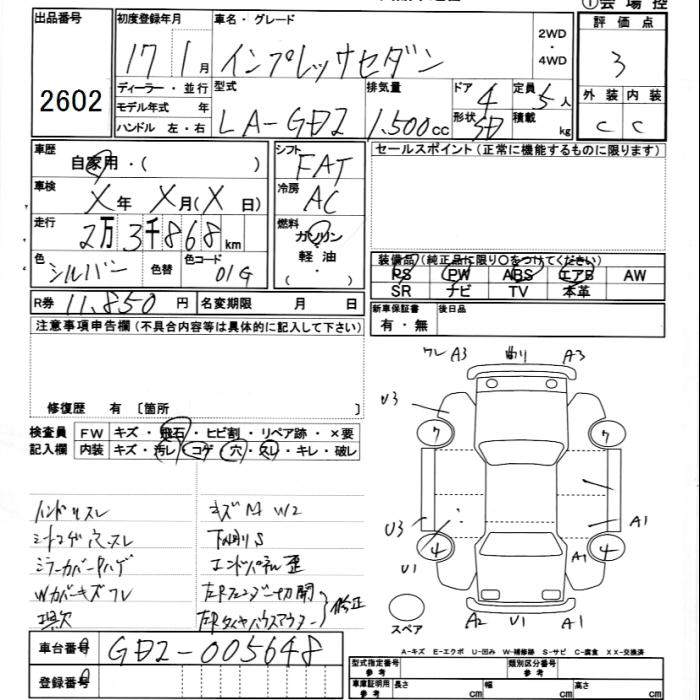 ①会場控
出品番号
2602
初度登録年月
17 1月
車名・グレード
インプレッサセダン
2WD
・
4WD
評価点
3
ディーラー・並行
モデル年式 年
ハンドル 左・右
型式
LA-GD2
排気量
1.500cc
ドア 4
形状 SD
定員 5人
積載 kg
外装 内装
C C
車歴
自家用・( )
シフト
FAT
セールスポイント(正常に機能するものに限ります)
車検
X年 X月(X日)
冷房
AC
走行
2万3千868km
燃料
ガソリン
軽油
( ・ )
色
シルバー
色替
色コード
01G
装備品(純正品に限り○をつけてください)
PS PW ABS エアB AW
SR ナビ TV 本革
R券 11,850円 名変期限 月 日
新車保証書
有・無
後日品
注意事項申告欄(不具合内容等は具体的に記入して下さい)
修復歴 有 〔箇所 〕
検査員
記入欄
FW キズ・飛石・ヒビ割・リペア跡・×要
内装 キズ・汚レ・コゲ・穴・スレ・キレ・破レ
ハンドルスレ
シートコゲ穴スレ
ミラーカバーハゲ
Wカバーキズワレ
欠
キズM W2
下廻りS
エンドパネル歪
左Rフェンダー切開
左Rタイヤハウスアウター
修正
ワレ A3 曲り A3
U3
7 7
U3
A1
4 4
U1
A1
スペア
A2 U1 A1
A-キズ E-エクボ U-凹み W-補修跡 S-サビ C-腐食 XX-交換済
車台番号
GD2-005648
登録番号
型式指定番号
参考
類別区分番号
参考
車庫証明用
参考
長さ cm
幅 cm
高さ cm